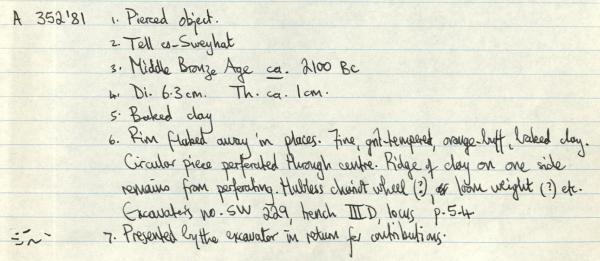 A 352'81 1. Pierced object.
2. Tell es-Sweyhat
3. Middle Bronze Age ca. 2100 BC
4. Di. 6.3cm. Th. ca. 1cm.
5. Baked clay
6. Rim flaked away in places. Fine, grit-tempered, orange-buff, baked clay.
Circular piece perforated through centre. Ridge of clay on one side
remains from perforating. Hubless chariot wheel (?), loom weight (?) etc.
Excavater's no. SW 229, trench III D, locus p. 5-4
7. Presented by the excavator in return for contributions.